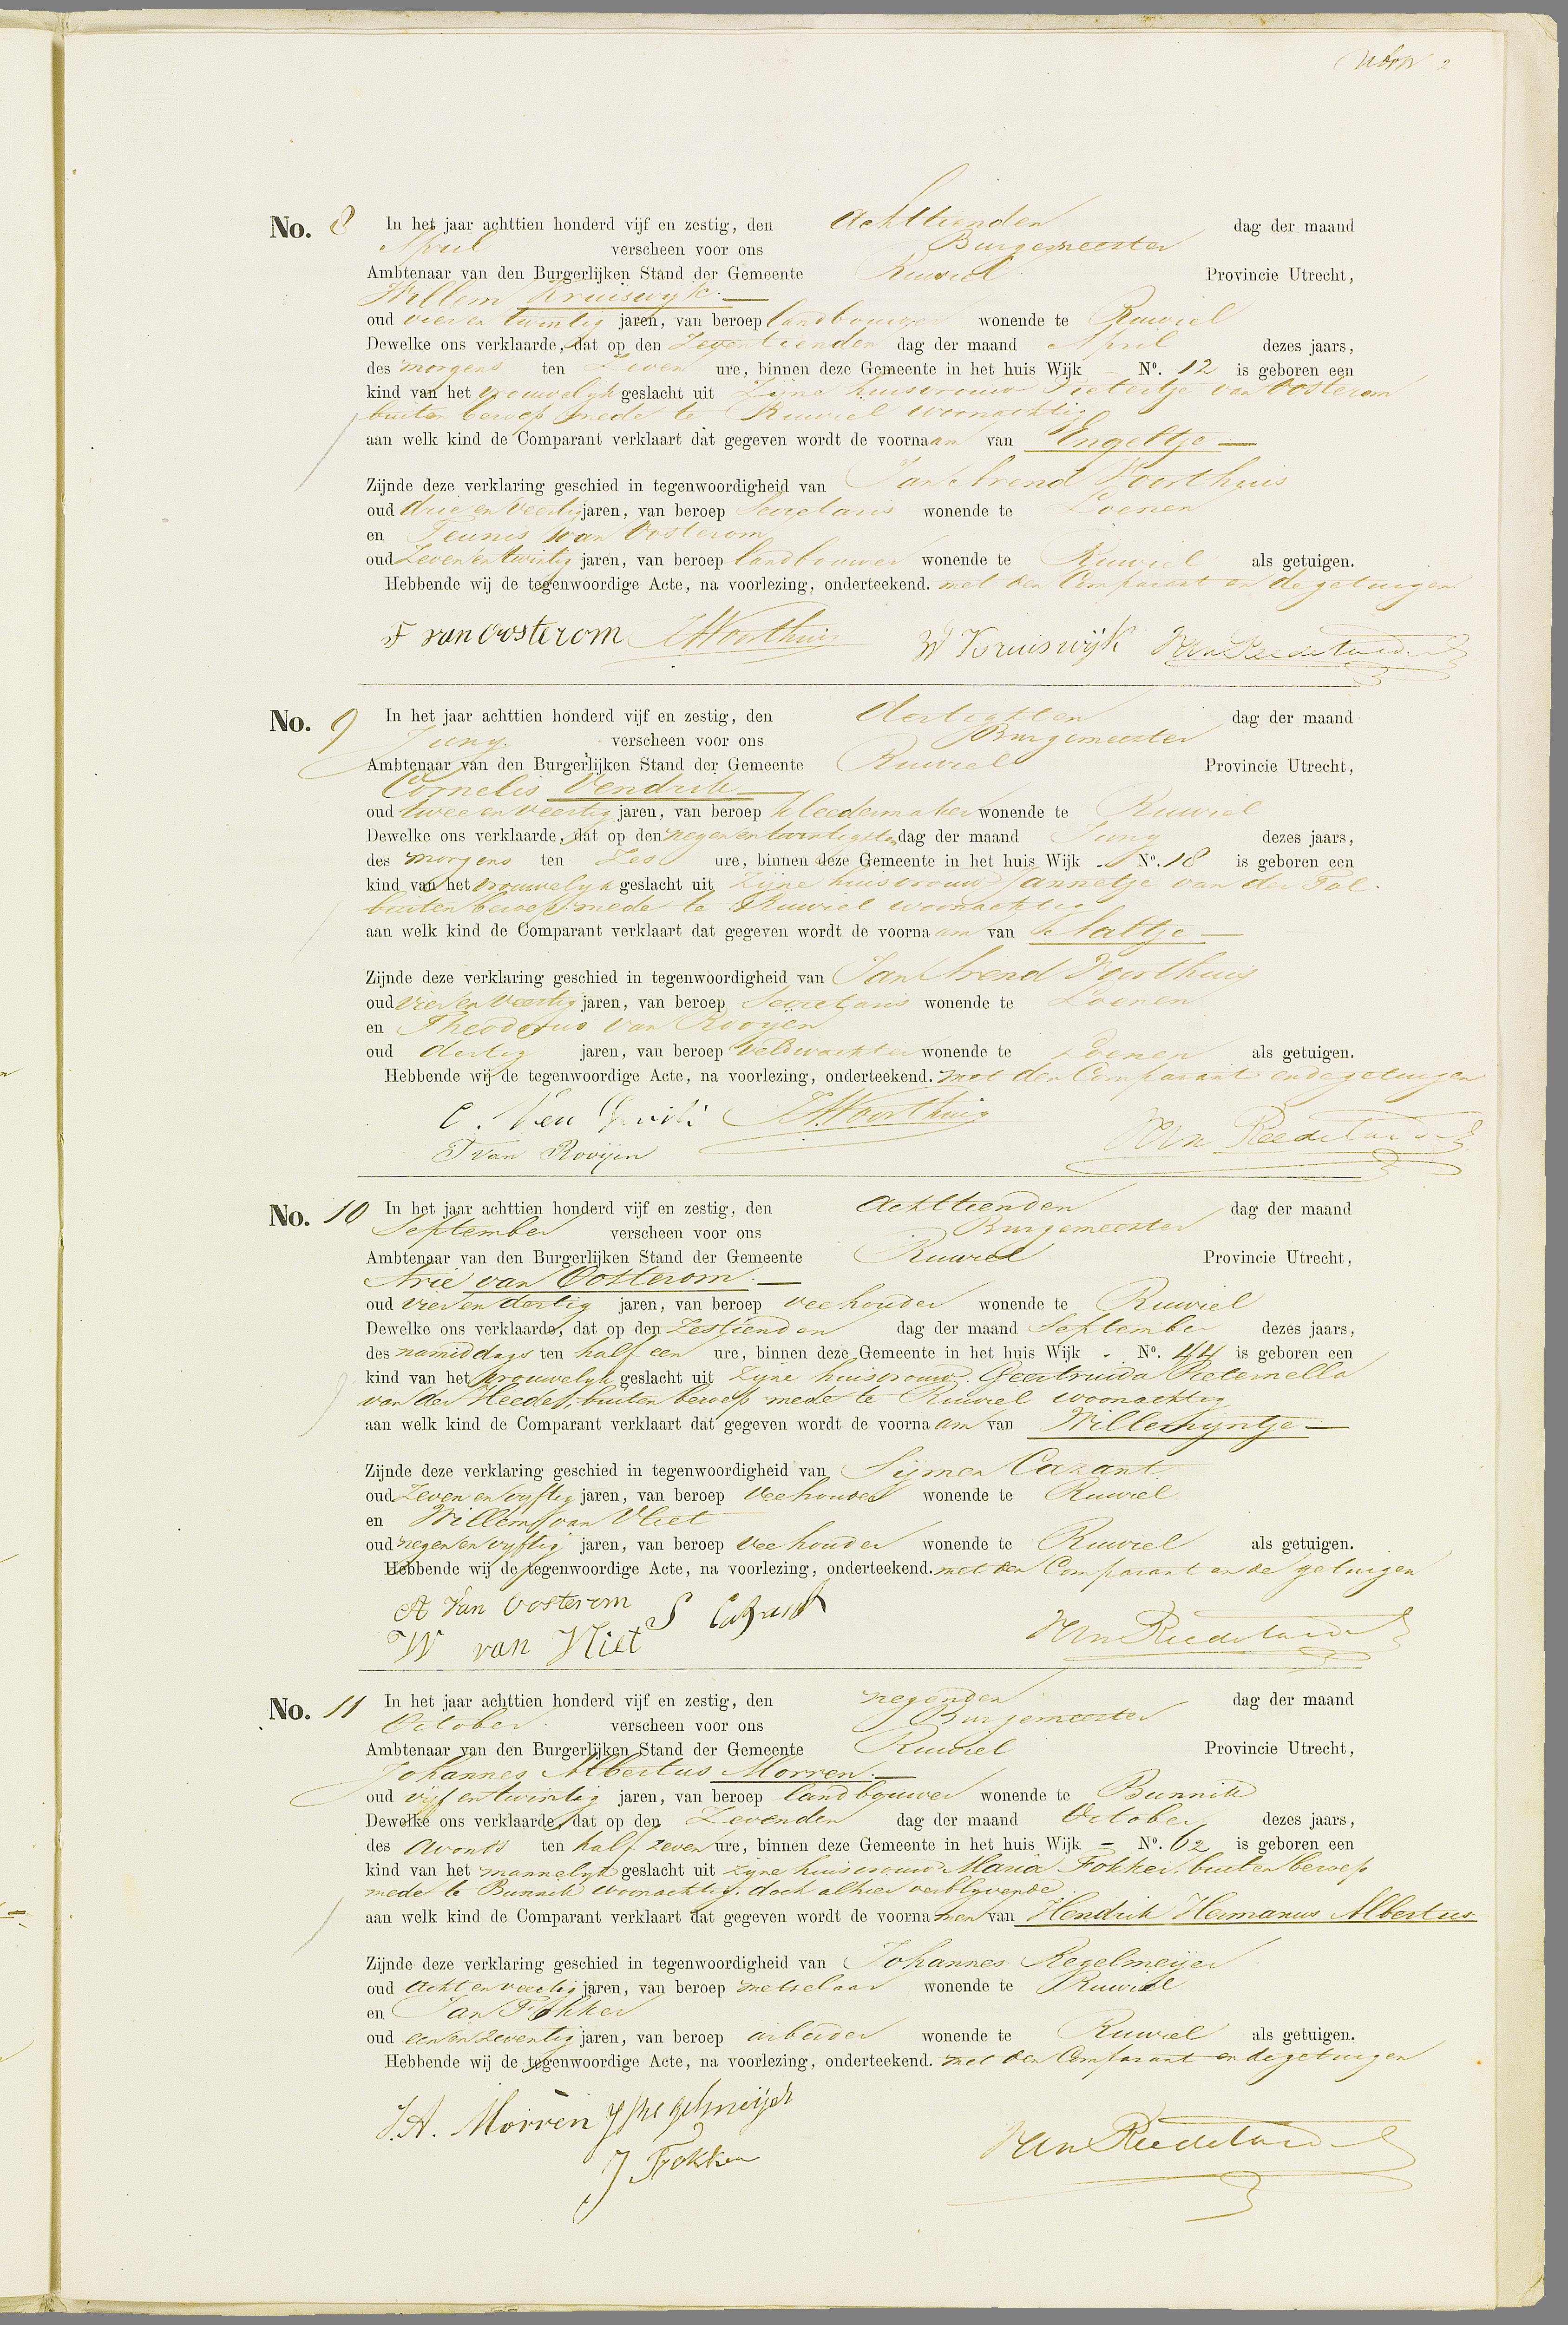 2
No. 8 In het jaar achttien honderd vijf en zestig, den Achttienden dag der maand
April verscheen voor ons Burgemeester
Ambtenaar van den Burgerlijken Stand der Gemeente Ruwiel Provincie Utrecht,
Willem Kruiswijk. —
oud vier en twintig jaren, van beroep landbouwer wonende te Ruwiel
Dewelke ons verklaarde, dat op den Zeventienden dag der maand April dezes jaars,
des morgens ten Zeven ure, binnen deze Gemeente in het huis Wijk – No. 12 is geboren een
kind van het vrouwelyk geslacht uit Zijne huisvrouw Pietertje van Oosterom
buiten beroep mede te Ruwiel woonachtig
aan welk kind de Comparant verklaart dat gegeven wordt de voornaam van Engeltje —
Zijnde deze verklaring geschied in tegenwoordigheid van Jan Arend Voorthuis
oud drie en veertig jaren, van beroep Secretaris wonende te Loenen
en Teunis van Oosterom
oud Zeven en twintig jaren, van beroep landbouwer wonende te Ruwiel als getuigen.
Hebbende wij de tegenwoordige Acte, na voorlezing, onderteekend. met den Comparant en de getuigen
T van Oosterom JAVoorthuis W Kruiswijk
No. 9 In het jaar achttien honderd vijf en zestig, den dertigsten dag der maand
Juny. verscheen voor ons Burgemeester
Ambtenaar van den Burgerlijken Stand der Gemeente Ruwiel Provincie Utrecht,
Cornelis Vendrik —
oud twee en veertig jaren, van beroep kleedermaker wonende te Ruwiel
Dewelke ons verklaarde, dat op den negen en twintigsten dag der maand Juny dezes jaars,
des morgens ten Zes ure, binnen deze Gemeente in het huis Wijk - No. 18 is geboren een
kind van het vrouwelyk geslacht uit Zijne huisvrouw Jannetje van der Tol.
buiten beroep mede te Ruwiel woonachtig
aan welk kind de Comparant verklaart dat gegeven wordt de voornaam van Aaltje —
Zijnde deze verklaring geschied in tegenwoordigheid van Jan Arend Voorthuis
oud vier en veertig jaren, van beroep Secretaris wonende te Loenen
en Theodorus van Rooyen
oud dertig jaren, van beroep veldwachter wonende te Loenen als getuigen.
Hebbende wij de tegenwoordige Acte, na voorlezing, onderteekend. met den Comparant en de getuigen
C. Ven drik JAVoorthuis
T van Rooijen
No. 10 In het jaar achttien honderd vijf en zestig, den Achttienden dag der maand
September verscheen voor ons Burgemeester
Ambtenaar van den Burgerlijken Stand der Gemeente Ruwiel Provincie Utrecht,
Arie van Oosterom. —
oud vier en dertig jaren, van beroep veehouder wonende te Ruwiel
Dewelke ons verklaarde, dat op den Zestienden dag der maand September dezes jaars,
des namiddags ten half een ure, binnen deze Gemeente in het huis Wijk - No. 44 is geboren een
kind van het vrouwelyk geslacht uit Zijne huisvrouw. Geertruida Pieternella
van der Heeden, buiten beroep mede te Ruwiel woonachtig
aan welk kind de Comparant verklaart dat gegeven wordt de voornaam van Willemijntje —
Zijnde deze verklaring geschied in tegenwoordigheid van Sijmen Cazant
oud Zeven en vyftig jaren, van beroep Veehouder wonende te Ruwiel
en Willem van Vliet
oud negen en vyftig jaren, van beroep veehouder wonende te Ruwiel als getuigen.
Hebbende wij de tegenwoordige Acte, na voorlezing, onderteekend. met den Comparant en de getuigen
A van Oosterom S Cazant
W van Vliet
No. 11 In het jaar achttien honderd vijf en zestig, den negenden dag der maand
October. verscheen voor ons Burgemeester
Ambtenaar van den Burgerlijken Stand der Gemeente Ruwiel Provincie Utrecht,
Johannes Albertus Morren. —
oud vijf en twintig jaren, van beroep landbouwer wonende te Bunnik
Dewelke ons verklaarde, dat op den Zevenden dag der maand October dezes jaars,
des Avonds ten half zeven ure, binnen deze Gemeente in het huis Wijk – No. 62 is geboren een
kind van het mannelyk geslacht uit zijne huisvrouw Maria Fokker. buiten beroep
mede te Bunnik woonachtig. doch alhier verblyvende
aan welk kind de Comparant verklaart dat gegeven wordt de voornamen van Hendrik Hermanus Albertus
Zijnde deze verklaring geschied in tegenwoordigheid van Johannes Regelmeijer
oud acht en veertig jaren, van beroep metselaar wonende te Ruwiel
en Jan Fokker
oud een en zeventig jaren, van beroep arbeider wonende te Ruwiel als getuigen.
Hebbende wij de tegenwoordige Acte, na voorlezing, onderteekend. met den Comparant en de getuigen
J.A. Morren J Regelmeijer
J Fokker